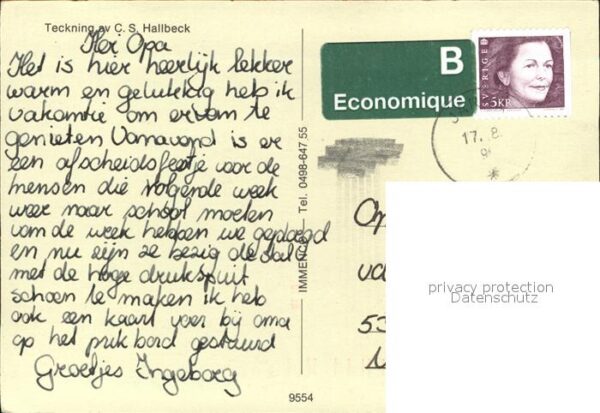 Teckning av C. S. Hallbeck
Hoi Opa
Het is hier heerlijk lekker
warm en gelukkig heb ik
vakantie om ervan te
genieten Vanavond is er
een afscheidsfeestje voor de
mensen die volgende week
weer naar school moeten
van de week hebben we geploegd
en nu zijn ze bezig de stal
met de hoge drukspuit
schoon te maken ik heb
ook een kaart voor bij oma
op het prikbord gestuurd
Groetjes Ingeborg
IMMENCO Tel. 0498-647 55
B
Economique
SVERIGE
5KR
17. 8.
Op
va
53
privacy protection
Datenschutz
9554